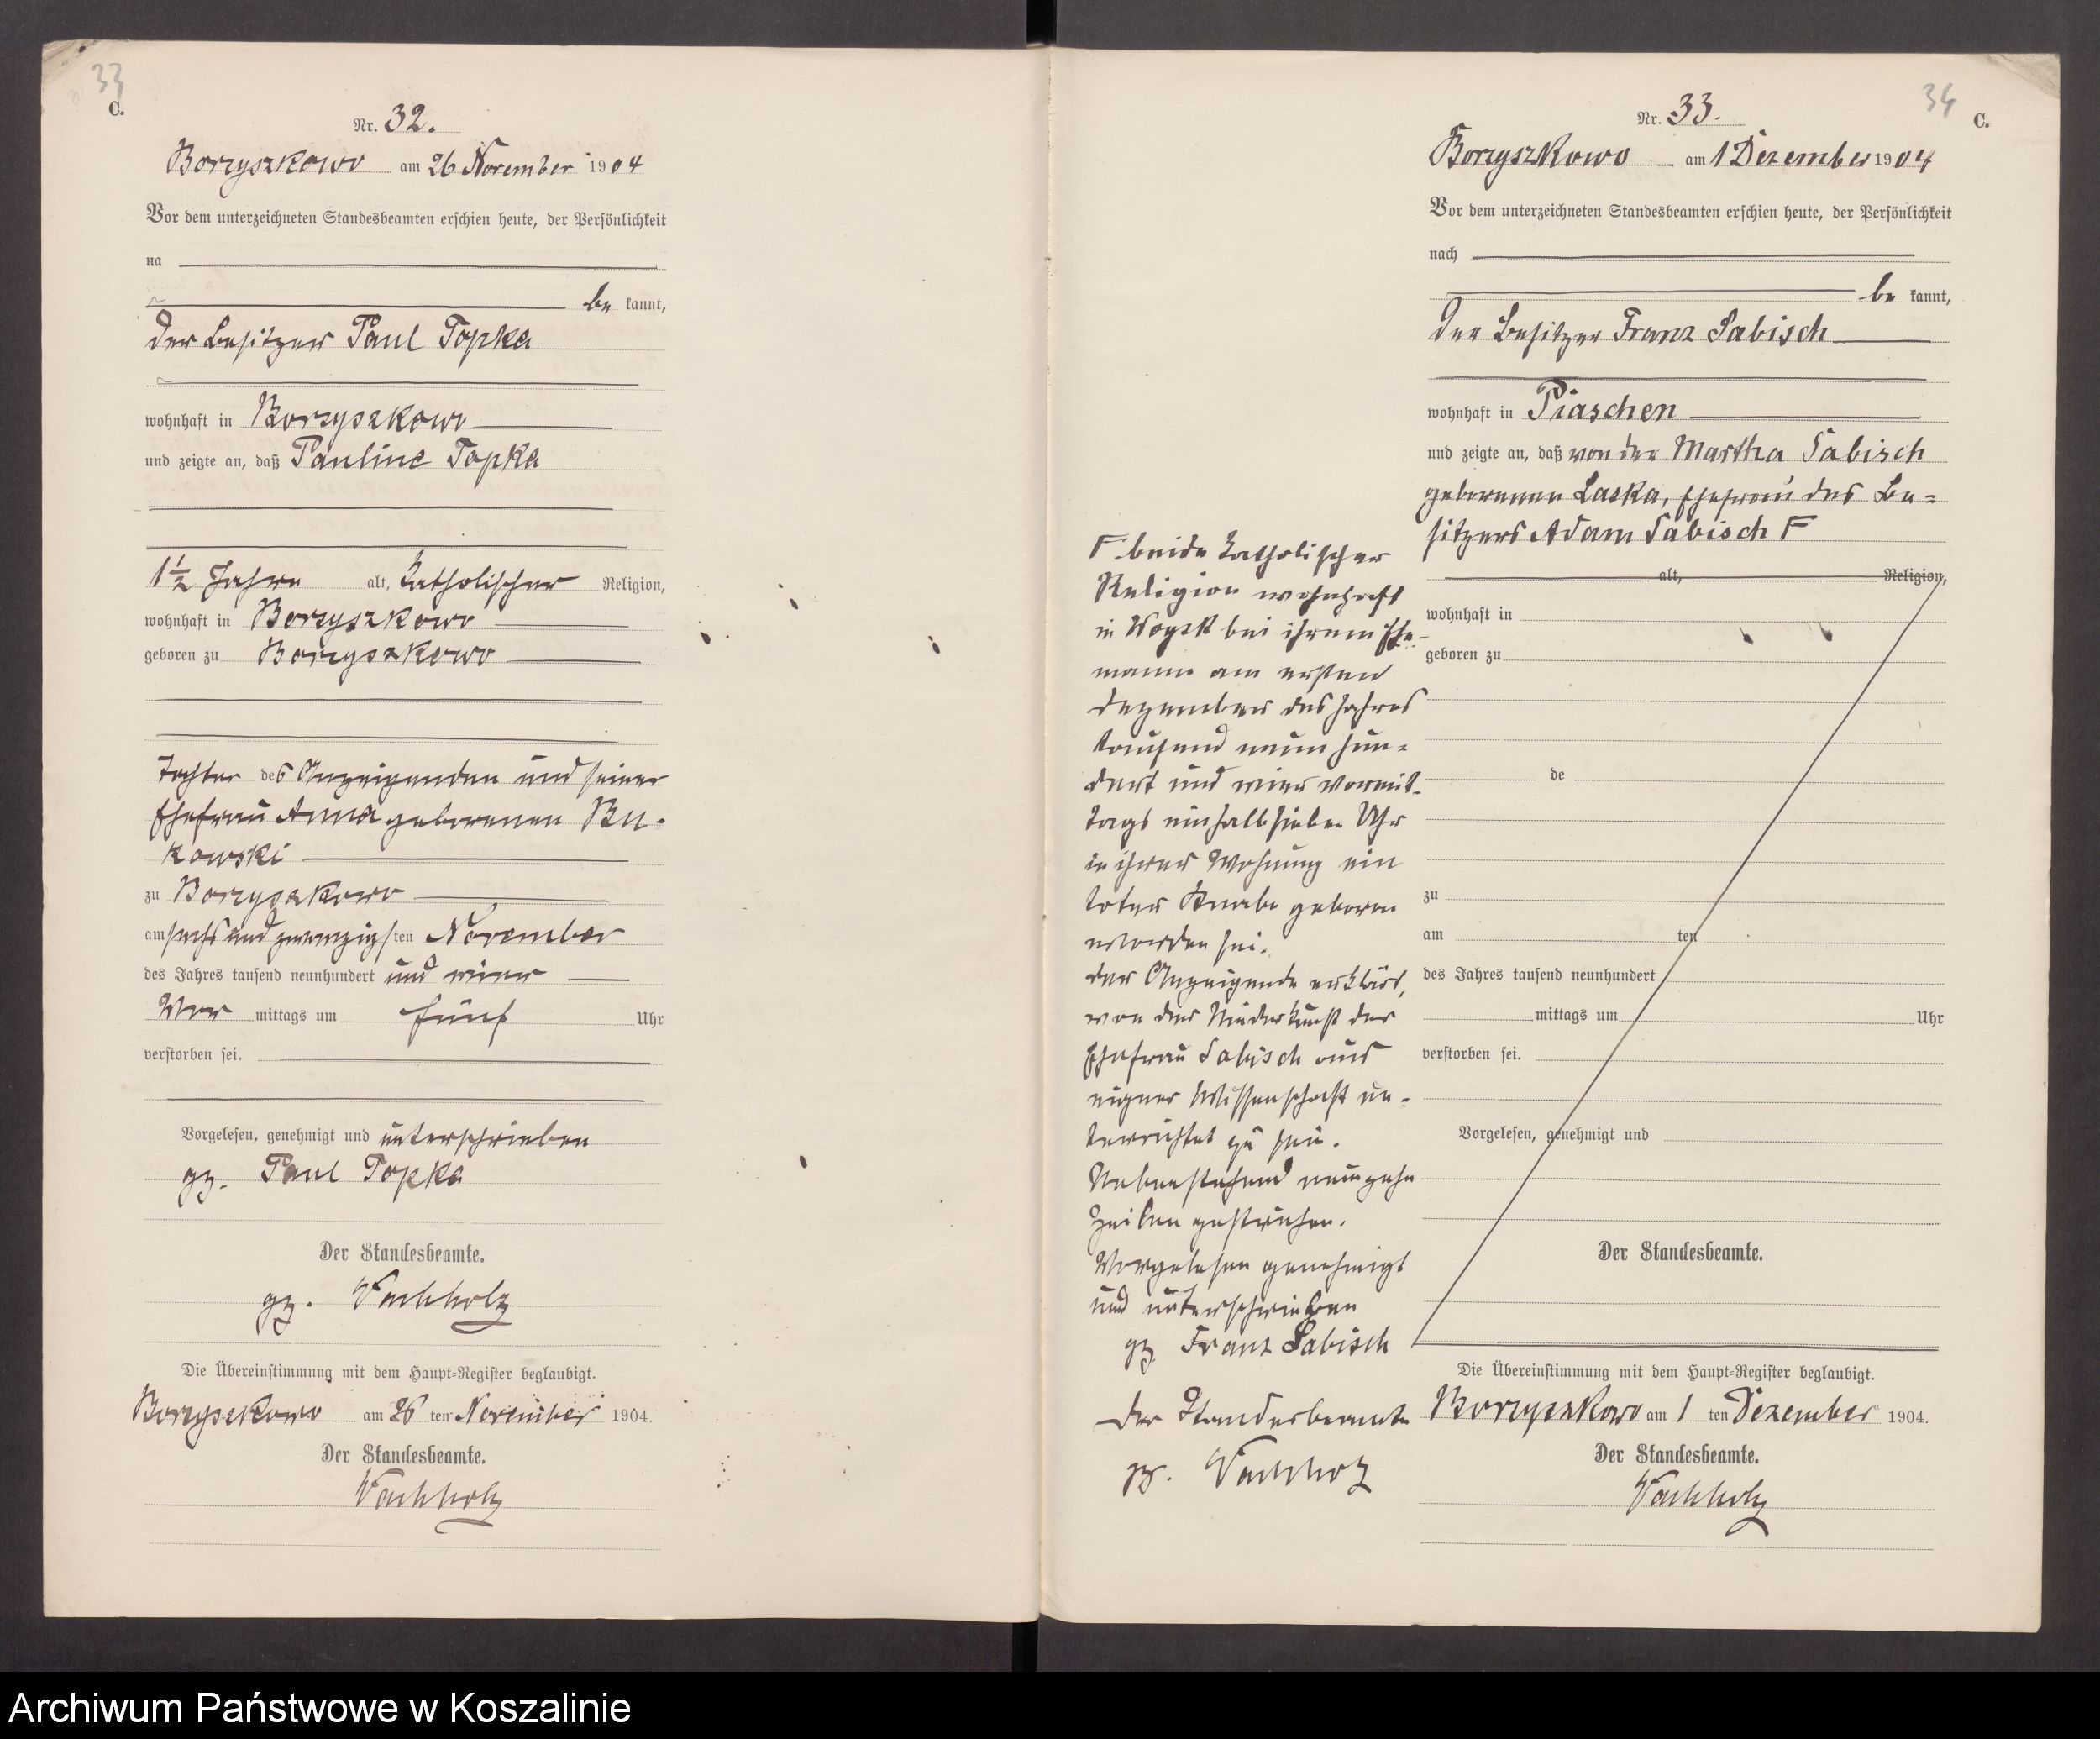 33
C.
Nr. 32.
Borzyszkowo am 26 November 1904
Vor dem unterzeichneten Standesbeamten erschien heute, der Persönlichkeit
na
be kannt,
der Besitzer Paul Topka
wohnhaft in Borzyszkowo
und zeigte an, daß Pauline Topka
1½ Jahre alt, katholischer Religion,
wohnhaft in Borzyszkowo
geboren zu Borzyszkowo
Tochter des Anzeigenden und seiner
Ehefrau Anna geborenen Bu-
kowski
zu Borzyszkowo
am sechs und zwanzigsten November
des Jahres tausend neunhundert und vier
Vor mittags um fünf Uhr
verstorben sei.
Vorgelesen, genehmigt und unterschrieben
gz. Paul Topka
Der Standesbeamte.
gz. Vachholz
Die Übereinstimmung mit dem Haupt-Register beglaubigt.
Borzyszkowo am 26 ten November 1904.
Der Standesbeamte.
Vachholz
34
C.
Nr. 33.
Borzyszkowo am 1 Dezember 1904
Vor dem unterzeichneten Standesbeamten erschien heute, der Persönlichkeit
nach
be kannt,
der Besitzer Franz Sabisch
wohnhaft in Piaschen
und zeigte an, daß von der Martha Sabisch
geborenen Laska, Ehefrau des Be=
sitzers Adam Sabisch F
alt, Religion,
wohnhaft in
geboren zu
de
zu
am ten
des Jahres tausend neunhundert
mittags um Uhr
verstorben sei.
Vorgelesen, genehmigt und
Der Standesbeamte.
F beide katholischer
Religion wohnhaft
in Woysk bei ihrem Ehe-
manne am ersten
Dezember des Jahres
tausend neun hun=
dert und vier vormit-
tags ein halb sieben Uhr
in ihrer Wohnung ein
toter Knabe geboren
worden sei.
der Anzeigende erklärt,
von der Niederkunft der
Ehefrau Sabisch aus
eigner Wissenschaft un-
terrichtet zu sein.
Nebenstehend neunzehn
Zeilen gestrichen.
Vorgelesen genehmigt
und unterschrieben
gz. Franz Sabisch
Der Standesbeamte
gz. Vachholz
Die Übereinstimmung mit dem Haupt-Register beglaubigt.
Borzyszkowo am 1 ten Dezember 1904.
Der Standesbeamte.
Vachholz
Archiwum Państwowe w Koszalinie